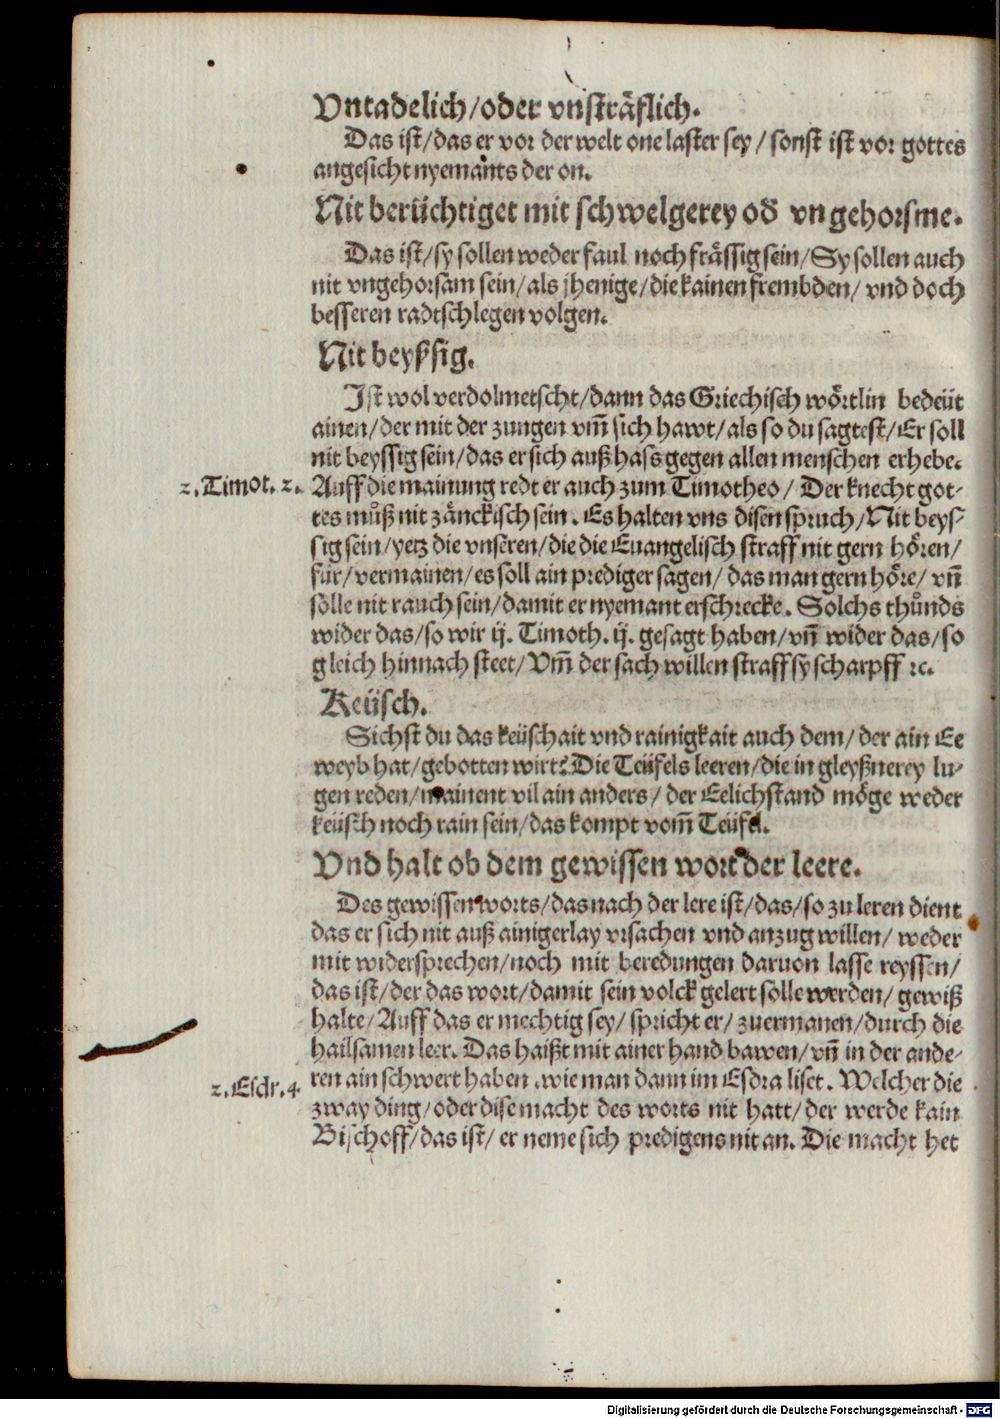 Vntadelich/oder vnsträflich.
Das ist/das er vor der welt one laster sey/sonst ist vor gottes
angesicht nyemants der on.
Nit berüchtiget mit schwelgerey oď vngehorsme.
Das ist/sy sollen weder faul noch frässig sein/Sy sollen auch
nit vngehorsam sein/als jhenige/die kainen frembden/vnd doch
besseren radtschlegen volgen.
Nit beyssig.
Ist wol verdolmetscht/dann das Griechisch wörtlin bedeüt
ainen/der mit der zungen vm̃ sich hawt/als so du sagtest/Er soll
nit beyssig sein/das er sich auß hass gegen allen menschen erhebe.
2. Timot. 2. Auff die mainung redt er auch zum Timotheo/Der knecht got-
tes můß nit zänckisch sein. Es halten vns disen spruch/Nit beys-
sig sein/yetz die vnseren/die die Euangelisch straff nit gern hören/
für/vermainen/es soll ain prediger sagen/das man gern höre/vñ
sölle nit rauch sein/damit er nyemant erschrecke. Solchs thůnds
wider das/so wir ij. Timoth. ij. gesagt haben/vñ wider das/so
gleich hinnach steet/Vm̃ der sach willen straff sy scharpff ꝛc.
Keüsch.
Sichst du das keüschait vnd rainigkait auch dem/der ain Ee
weyb hat/gebotten wirt? Die Teüfels leeren/die in gleyßnerey lu-
gen reden/mainent vil ain anders/der Eelichstand möge weder
keüsch noch rain sein/das kompt vom̃ Teüfel.
Vnd halt ob dem gewissen wort der leere.
Des gewissen worts/das nach der lere ist/das/so zu leren dient
das er sich nit auß ainigerlay vrsachen vnd anzug willen/weder
mit widersprechen/noch mit beredungen daruon lasse reyssen/
das ist/der das wort/damit sein volck gelert solle werden/gewiß
halte/Auff das er mechtig sey/spricht er/zuermanen/durch die
hailsamen leer. Das haißt mit ainer hand bawen/vñ in der ande-
2. Esdr. 4 ren ain schwert haben. wie man dann im Esdra liset. Welcher die
zway ding/oder dise macht des worts nit hatt/der werde kain
Bischoff/das ist/er neme sich predigens nit an. Die macht het
Digitalisierung gefördert durch die Deutsche Forschungsgemeinschaft - DFG